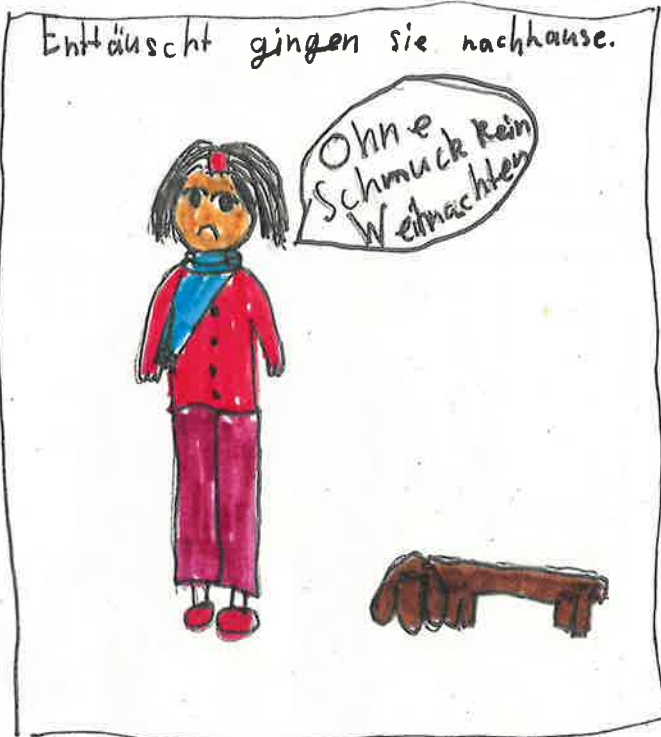 Enttäuscht gingen sie nachhause.
Ohne
Schmuck kein
Weihnachten